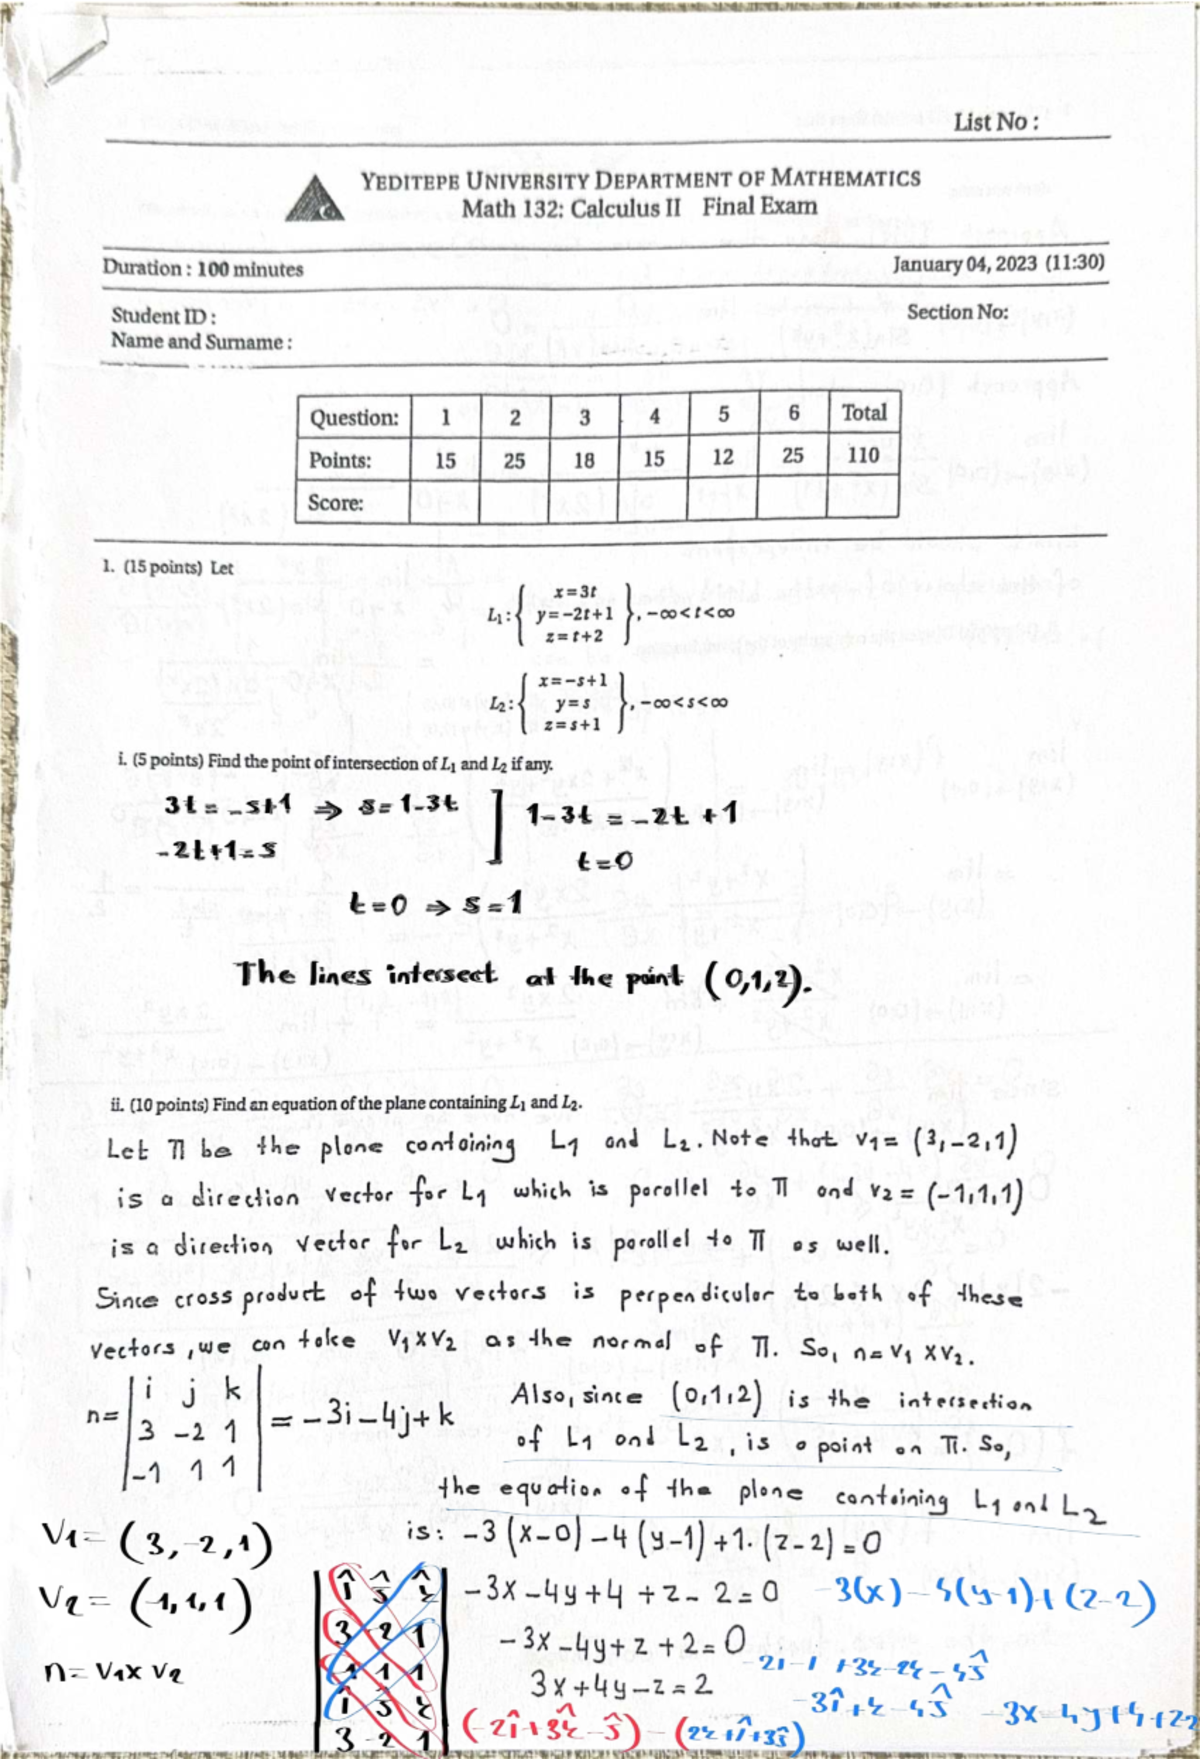 List No :
YEDITEPE UNIVERSITY DEPARTMENT OF MATHEMATICS
Math 132: Calculus II Final Exam
Duration : 100 minutes
January 04, 2023 (11:30)
Student ID :
Section No:
Name and Surname :
Question: 1 2 3 4 5 6 Total
Points: 15 25 18 15 12 25 110
Score:
1. (15 points) Let
L₁ : { x = 3t
y = −2t + 1
z = t + 2 } , −∞ < t < ∞
L₂ : { x = −s + 1
y = s
z = s + 1 } , −∞ < s < ∞
i. (5 points) Find the point of intersection of L₁ and L₂ if any.
3t = -s+1 ⇒ s = 1-3t ] 1-3t = -2t + 1
-2t+1 = s
t = 0
t = 0 ⇒ s = 1
The lines intersect at the point (0,1,2).
ii. (10 points) Find an equation of the plane containing L₁ and L₂.
Let π be the plane containing L₁ and L₂. Note that v₁ = (3,-2,1)
is a direction vector for L₁ which is parallel to π and v₂ = (-1,1,1)
is a direction vector for L₂ which is parallel to π as well.
Since cross product of two vectors is perpendicular to both of these
vectors, we can take v₁ x v₂ as the normal of π. So, n = v₁ x v₂.
n = | i j k
3 -2 1
-1 1 1 | = -3i - 4j + k
Also, since (0,1,2) is the intersection
of L₁ and L₂, is a point on π. So,
the equation of the plane containing L₁ and L₂
is: -3(x-0) - 4(y-1) + 1.(z-2) = 0
V₁ = (3, -2, 1)
-3x - 4y + 4 + z - 2 = 0
-3(x) - 4(y-1) + (z-2)
V₂ = (-1, 1, 1)
-3x - 4y + z + 2 = 0
n = V₁ x V₂
3x + 4y - z = 2
3 -2 1
3 -2 1